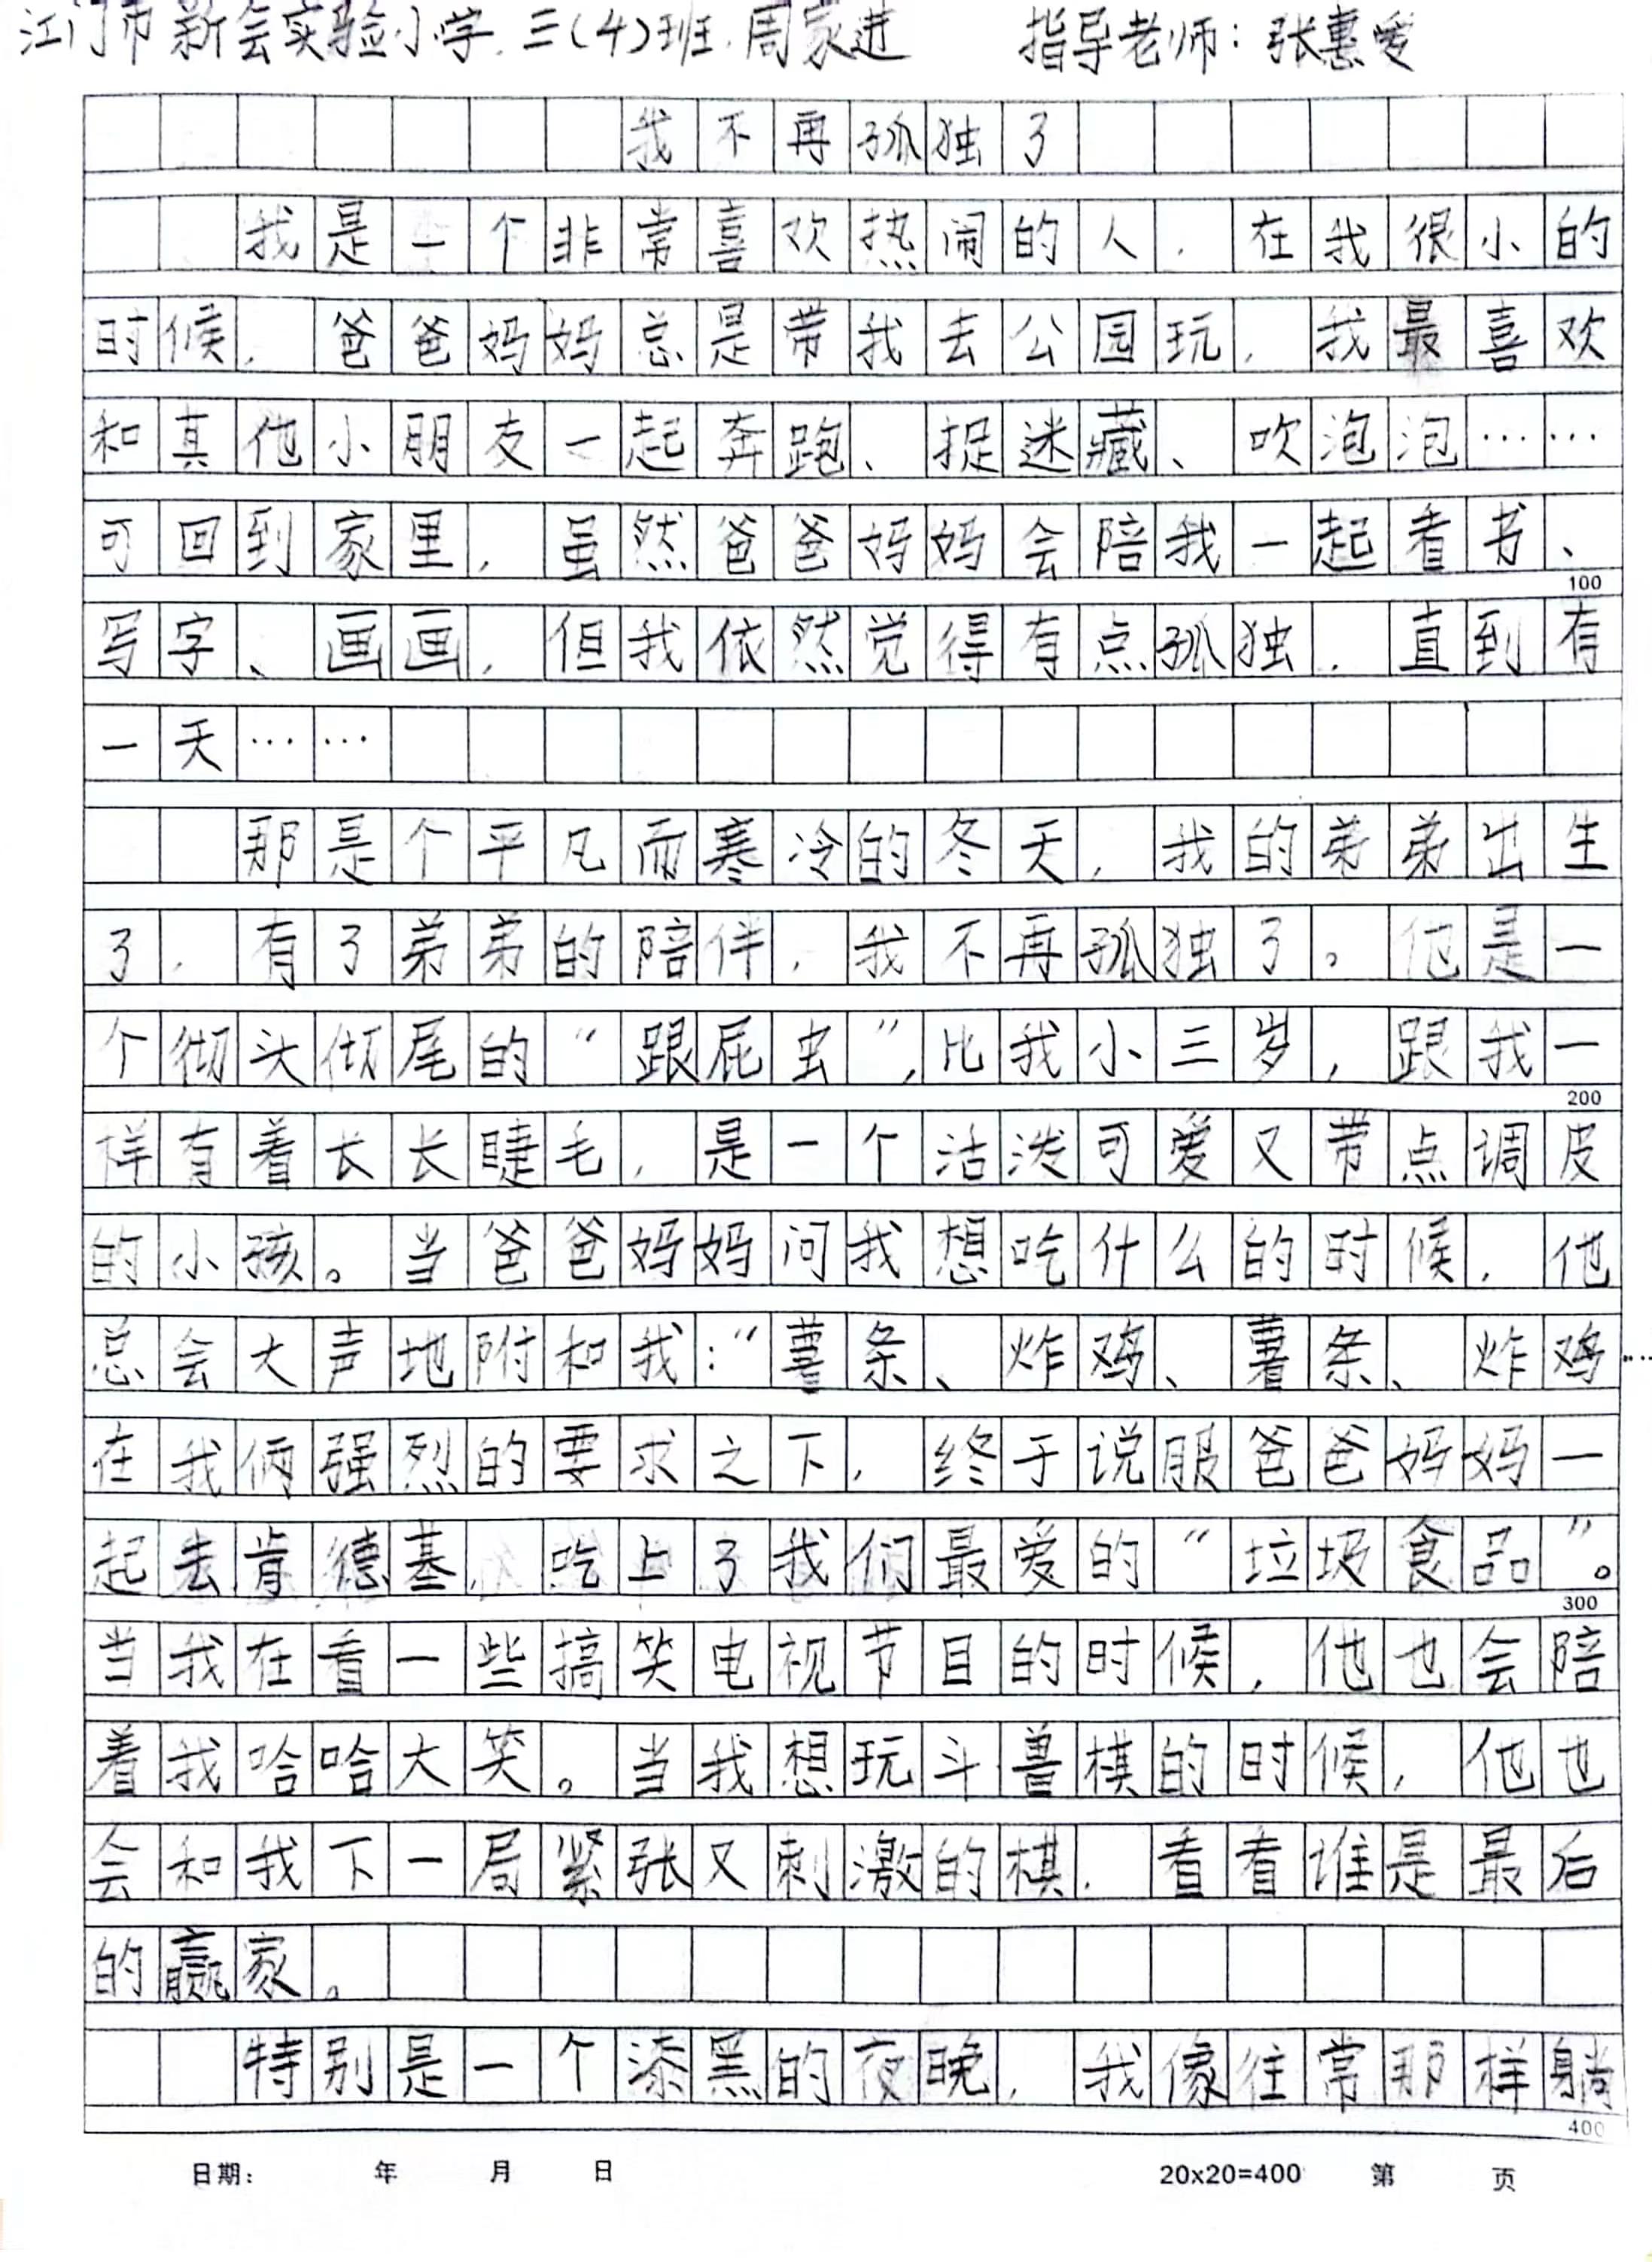 江门市新会实验小学.三(4)班.周家进 指导老师:张惠爱
我不再孤独了
我是一个非常喜欢热闹的人,在我很小的
时候,爸爸妈妈总是带我去公园玩,我最喜欢
和其他小朋友一起奔跑、捉迷藏、吹泡泡……
可回到家里,虽然爸爸妈妈会陪我一起看书、
100
写字、画画,但我依然觉得有点孤独,直到有
一天……
那是个平凡而寒冷的冬天,我的弟弟出生
了,有了弟弟的陪伴,我不再孤独了。他是一
个彻头彻尾的“跟屁虫”,比我小三岁,跟我一
200
样有着长长睫毛,是一个活泼可爱又带点调皮
的小孩。当爸爸妈妈问我想吃什么的时候,他
总会大声地附和我:“薯条、炸鸡、薯条、炸鸡…
在我俩强烈的要求之下,终于说服爸爸妈妈一
起去肯德基,吃上了我们最爱的“垃圾食品”。
300
当我在看一些搞笑电视节目的时候,他也会陪
着我哈哈大笑。当我想玩斗兽棋的时候,他也
会和我下一局紧张又刺激的棋,看看谁是最后
的赢家。
特别是一个漆黑的夜晚,我像往常那样躺
400
日期: 年 月 日 20x20=400 第 页